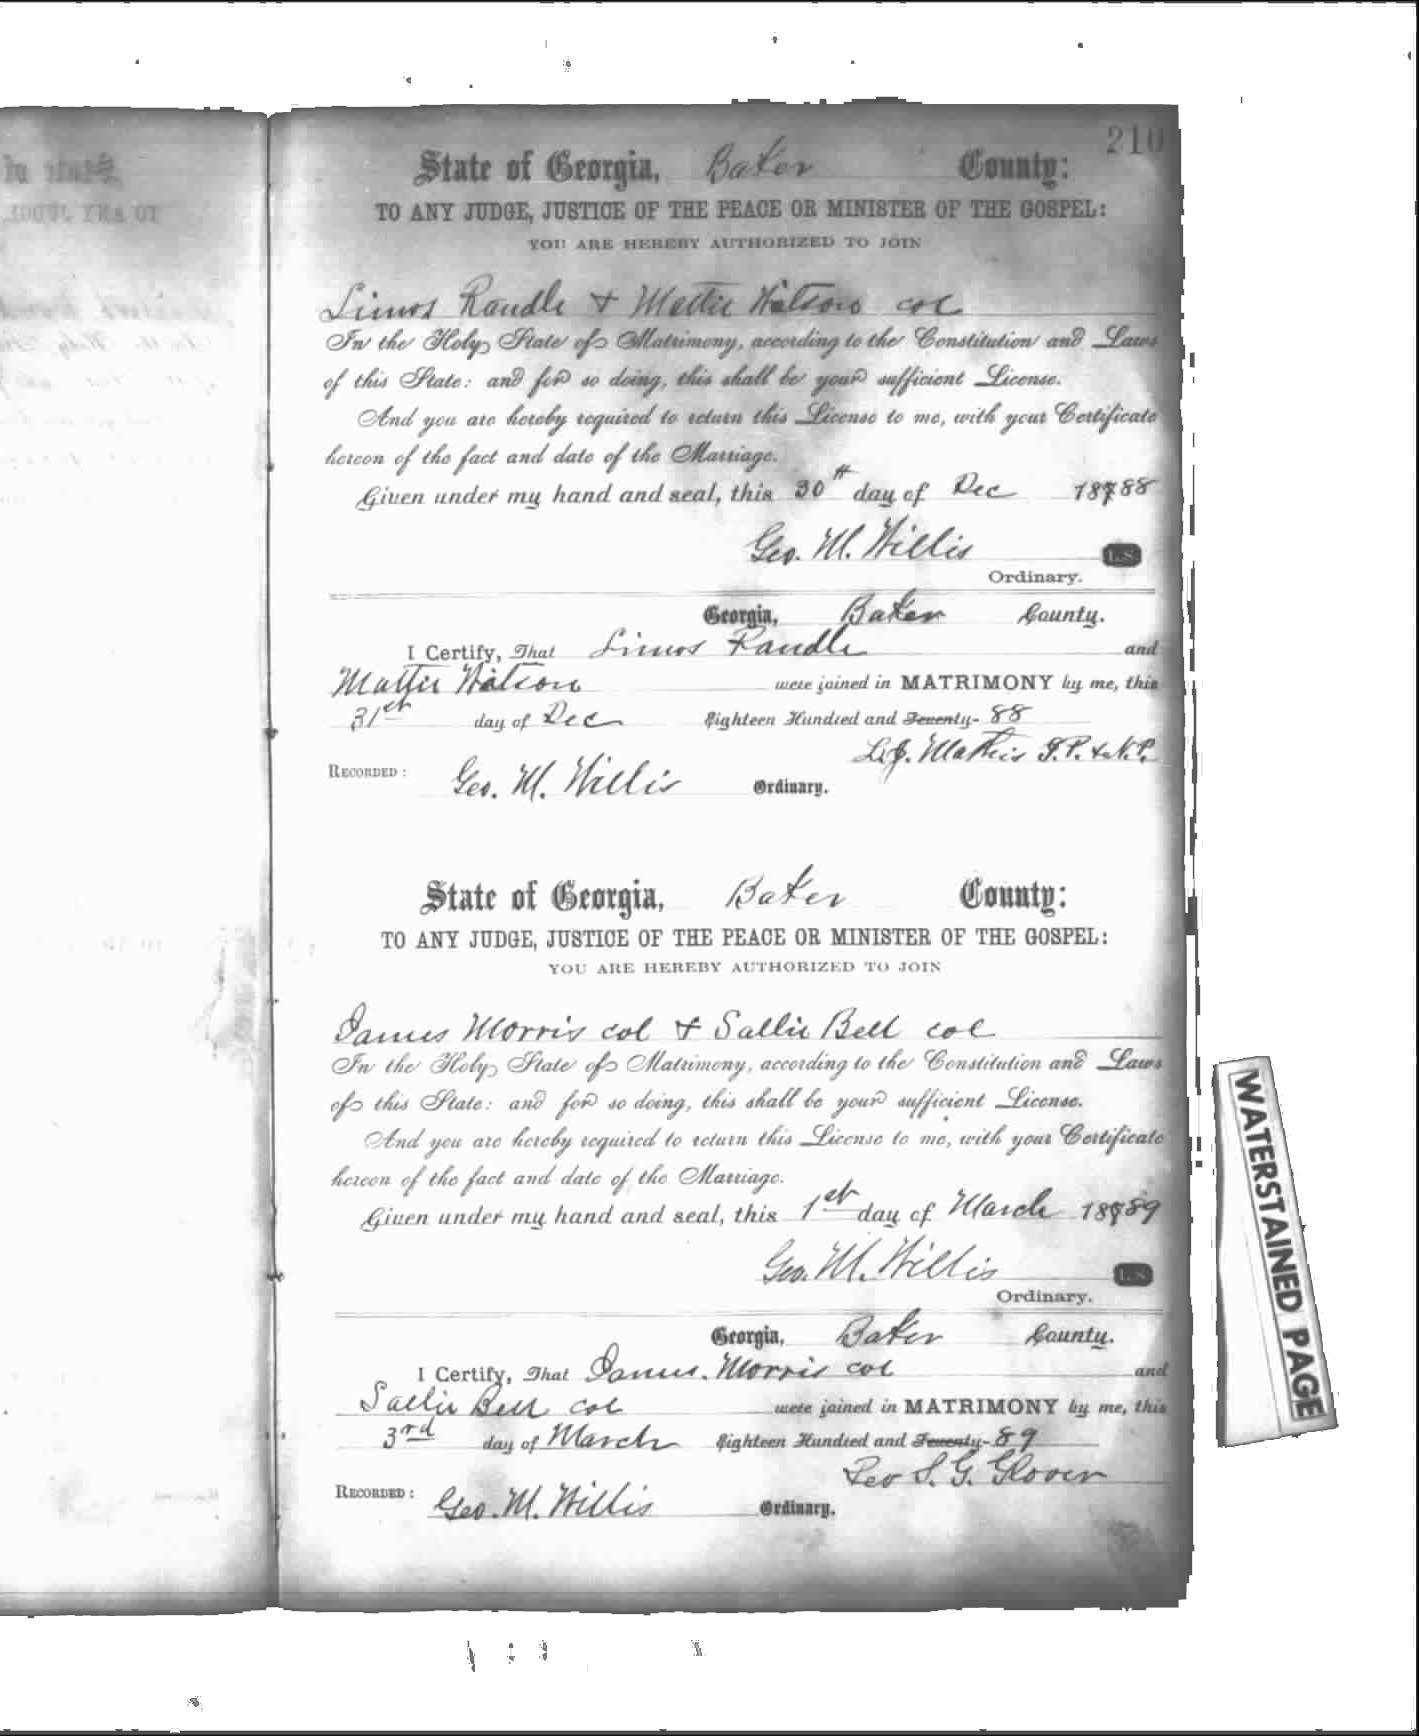 210
State of Georgia, Baker County:
TO ANY JUDGE, JUSTICE OF THE PEACE OR MINISTER OF THE GOSPEL:
YOU ARE HEREBY AUTHORIZED TO JOIN
Simos Randle & Mattie Watson col
In the Holy State of Matrimony, according to the Constitution and Laws
of this State: and for so doing, this shall be your sufficient License.
And you are hereby required to return this License to me, with your Certificate
hereon of the fact and date of the Marriage.
Given under my hand and seal, this 30th day of Dec 18788
Geo. M. Willis L.S.
Ordinary.
Georgia, Baker County.
I Certify, That Simos Randle and
Mattie Watson were joined in MATRIMONY by me, this
31st day of Dec Eighteen Hundred and Seventy-88
L.J. Mathis J.P. & N.P.
RECORDED: Geo. M. Willis Ordinary.
State of Georgia, Baker County:
TO ANY JUDGE, JUSTICE OF THE PEACE OR MINISTER OF THE GOSPEL:
YOU ARE HEREBY AUTHORIZED TO JOIN
James Morris col & Sallie Bell col
In the Holy State of Matrimony, according to the Constitution and Laws
of this State: and for so doing, this shall be your sufficient License.
And you are hereby required to return this License to me, with your Certificate
hereon of the fact and date of the Marriage.
Given under my hand and seal, this 1st day of March 18789
Geo. M. Willis L.S.
Ordinary.
Georgia, Baker County.
I Certify, That James Morris col and
Sallie Bell col were joined in MATRIMONY by me, this
3rd day of March Eighteen Hundred and Seventy-89
Rev S. G. Glover
RECORDED: Geo. M. Willis Ordinary.
WATERSTAINED PAGE